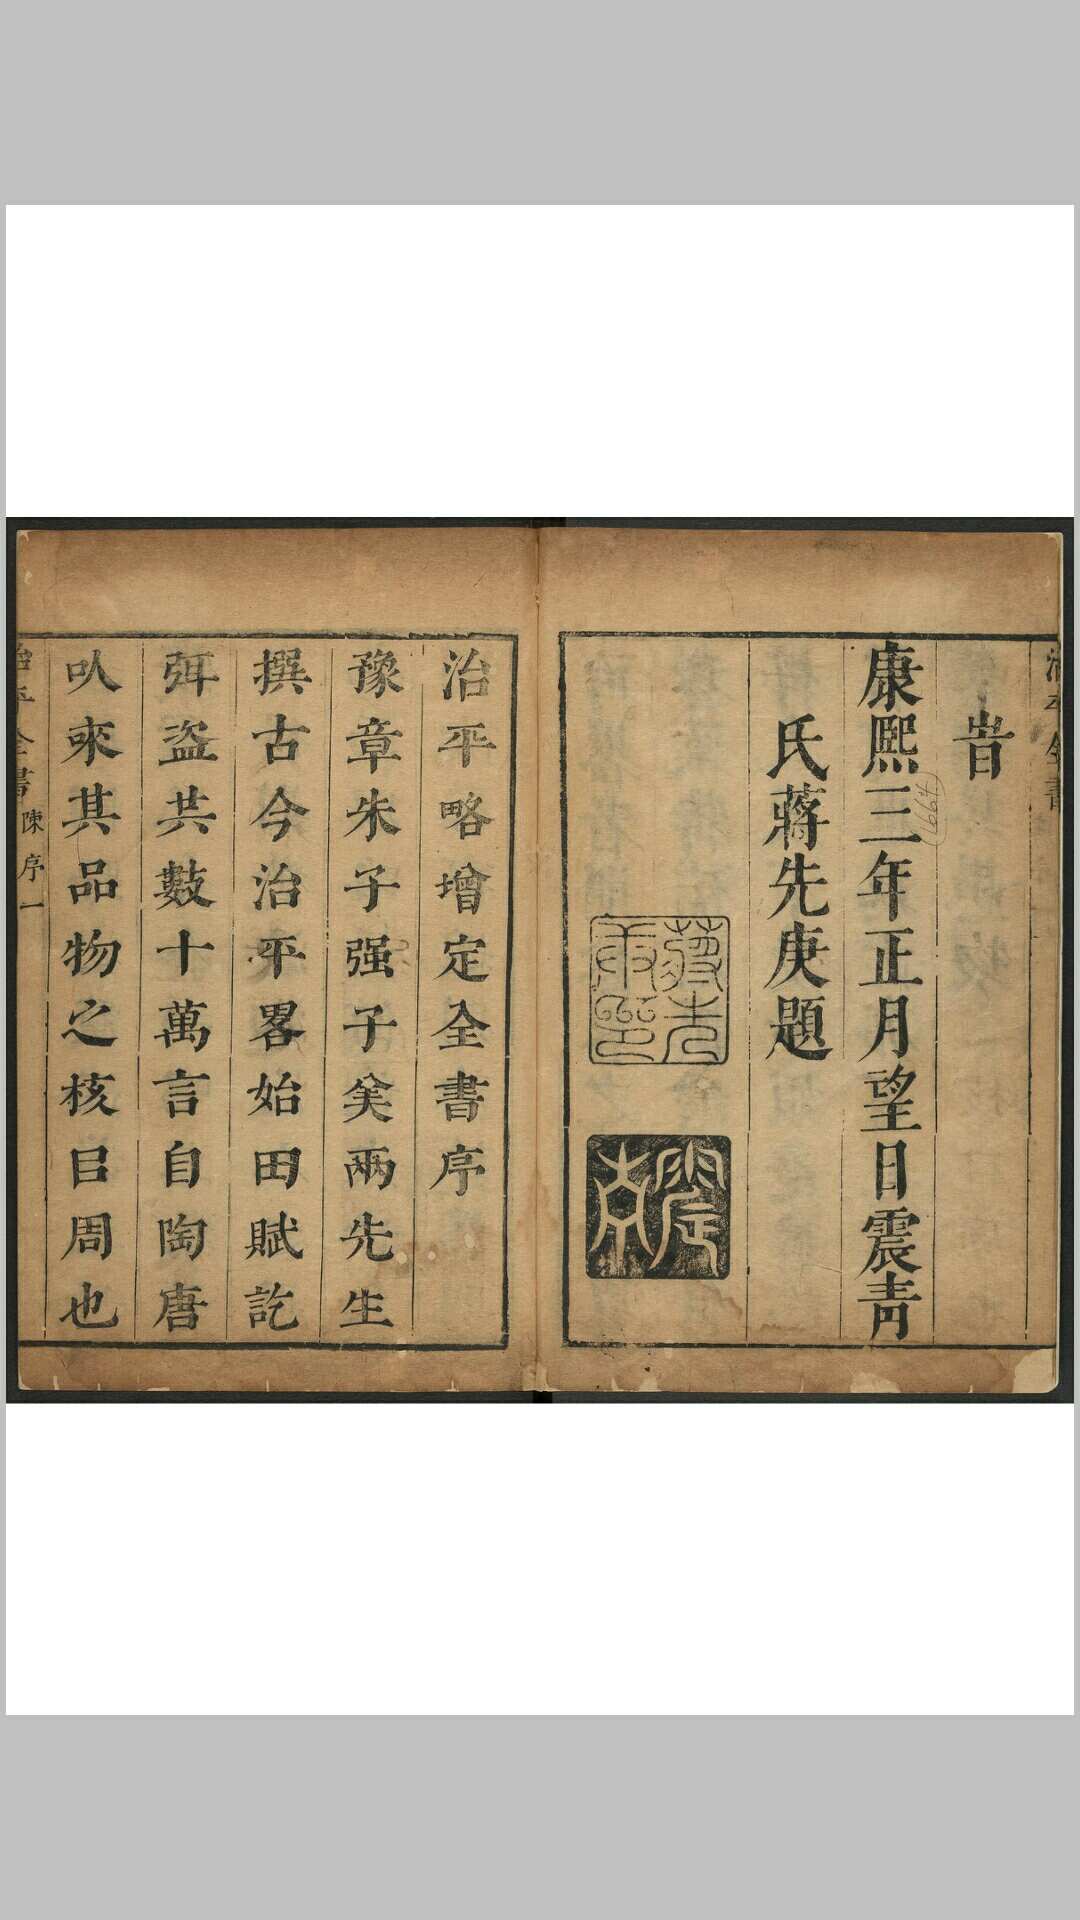 旹
康熙三年正月望日震青
氏蔣先庚題
蔣先庚印
治平略增定全書序
豫章朱子强子美兩先生
撰古今治平畧始田賦訖
弭盗共數十萬言自陶唐
㕥來其品物之核㠯周也
治平全書
陳序
一